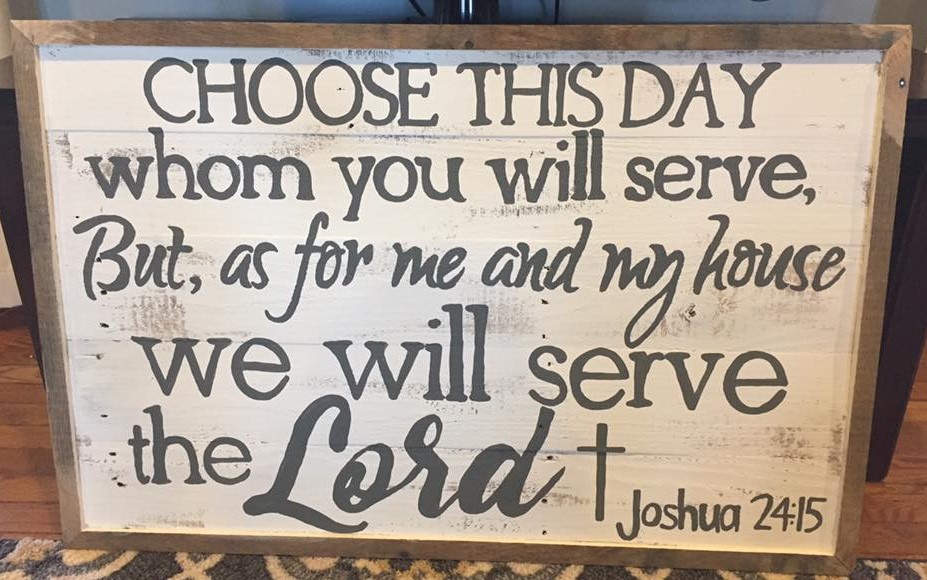 CHOOSE THIS DAY
whom you will serve,
But, as for me and my house
we will serve
the Lord
Joshua 24:15